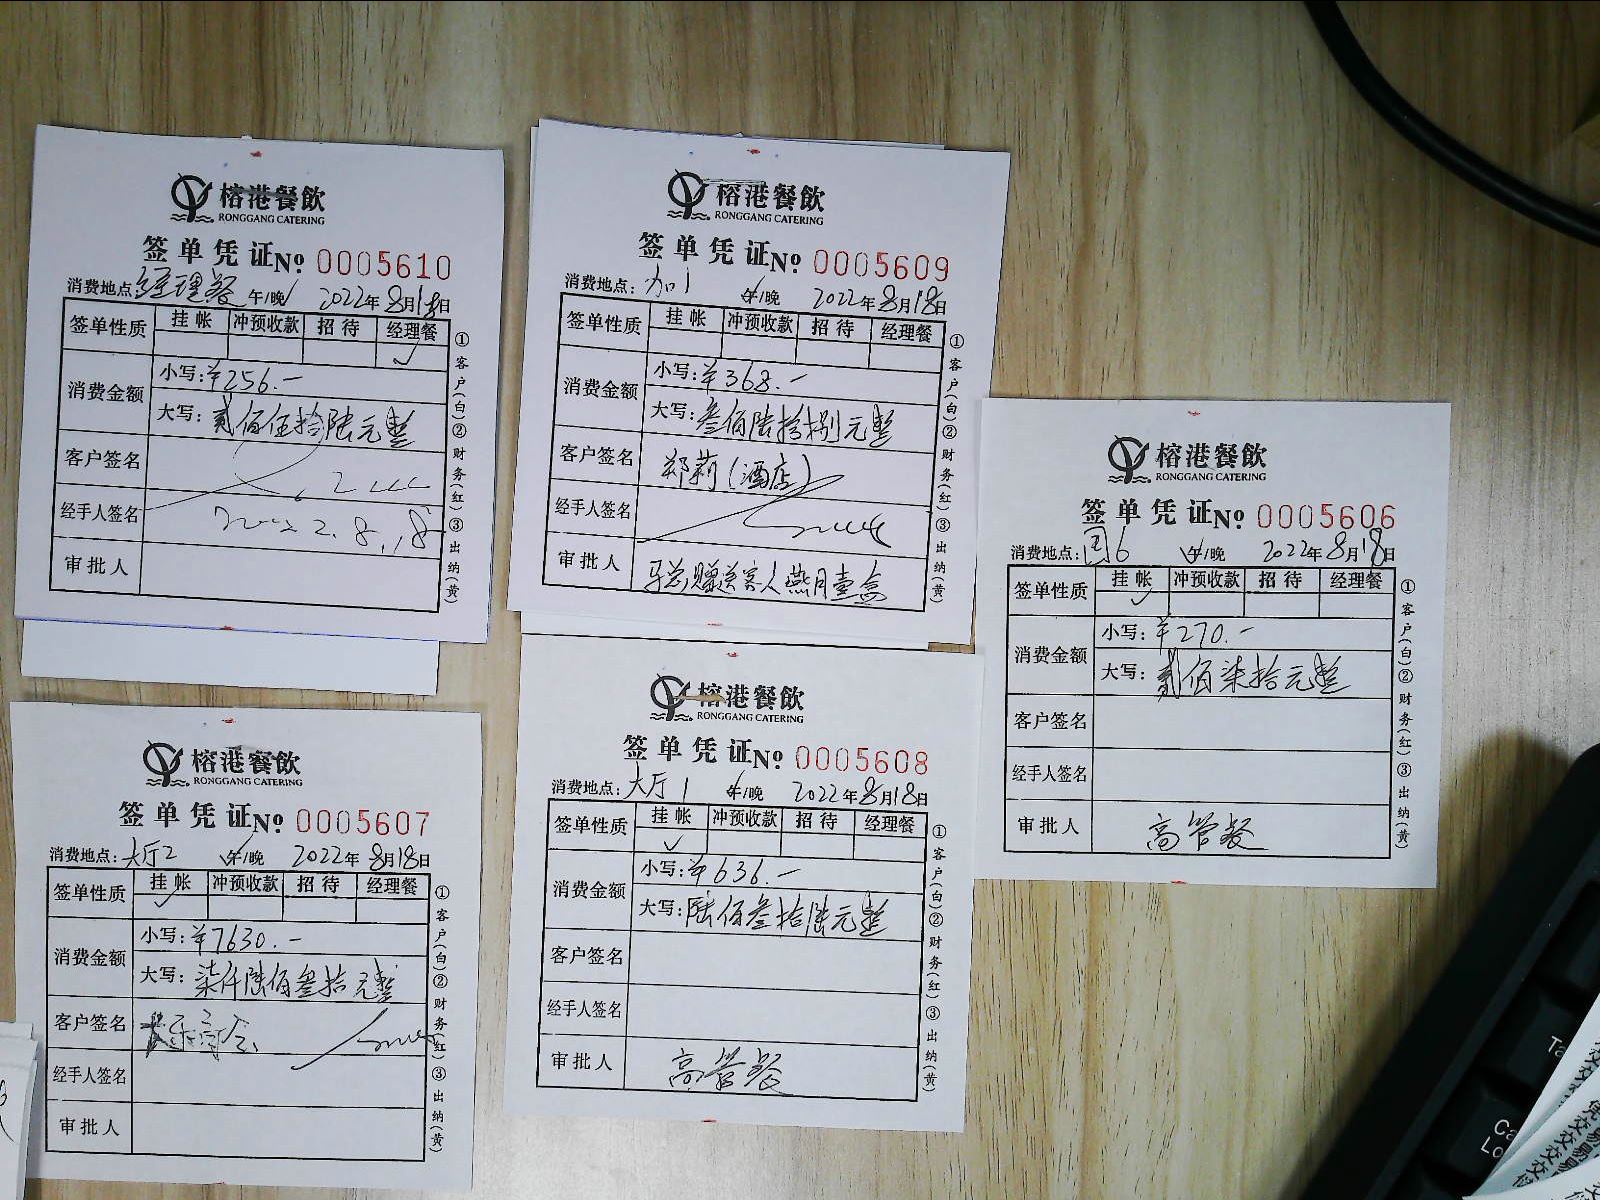 榕港餐飲
RONGGANG CATERING
签单凭证 No 0005610
消费地点:经理餐 午/晚 2022年8月18日
签单性质 挂帐 冲预收款 招待 经理餐
✓
消费金额
小写:¥256.-
大写:贰佰伍拾陆元整
客户签名
经手人签名
2022.8.18
审批人
①客户(白)②财务(红)③出纳(黄)
榕港餐飲
RONGGANG CATERING
签单凭证 No 0005609
消费地点:加1 午/晚 2022年8月18日
签单性质 挂帐 冲预收款 招待 经理餐
消费金额
小写:¥368.-
大写:叁佰陆拾捌元整
客户签名 郑莉(酒店)
经手人签名
审批人 赠送客人燕月壹盒
①客户(白)②财务(红)③出纳(黄)
榕港餐飲
RONGGANG CATERING
签单凭证 No 0005606
消费地点:国6 午/晚 2022年8月18日
签单性质 挂帐 冲预收款 招待 经理餐
✓
消费金额
小写:¥270.-
大写:贰佰柒拾元整
客户签名
经手人签名
审批人 高管餐
①客户(白)②财务(红)③出纳(黄)
榕港餐飲
RONGGANG CATERING
签单凭证 No 0005607
消费地点:大厅2 午/晚 2022年8月18日
签单性质 挂帐 冲预收款 招待 经理餐
✓
消费金额
小写:¥7630.-
大写:柒仟陆佰叁拾元整
客户签名
经手人签名
审批人
①客户(白)②财务(红)③出纳(黄)
榕港餐飲
RONGGANG CATERING
签单凭证 No 0005608
消费地点:大厅1 午/晚 2022年8月18日
签单性质 挂帐 冲预收款 招待 经理餐
✓
消费金额
小写:¥636.-
大写:陆佰叁拾陆元整
客户签名
经手人签名
审批人 高管餐
①客户(白)②财务(红)③出纳(黄)